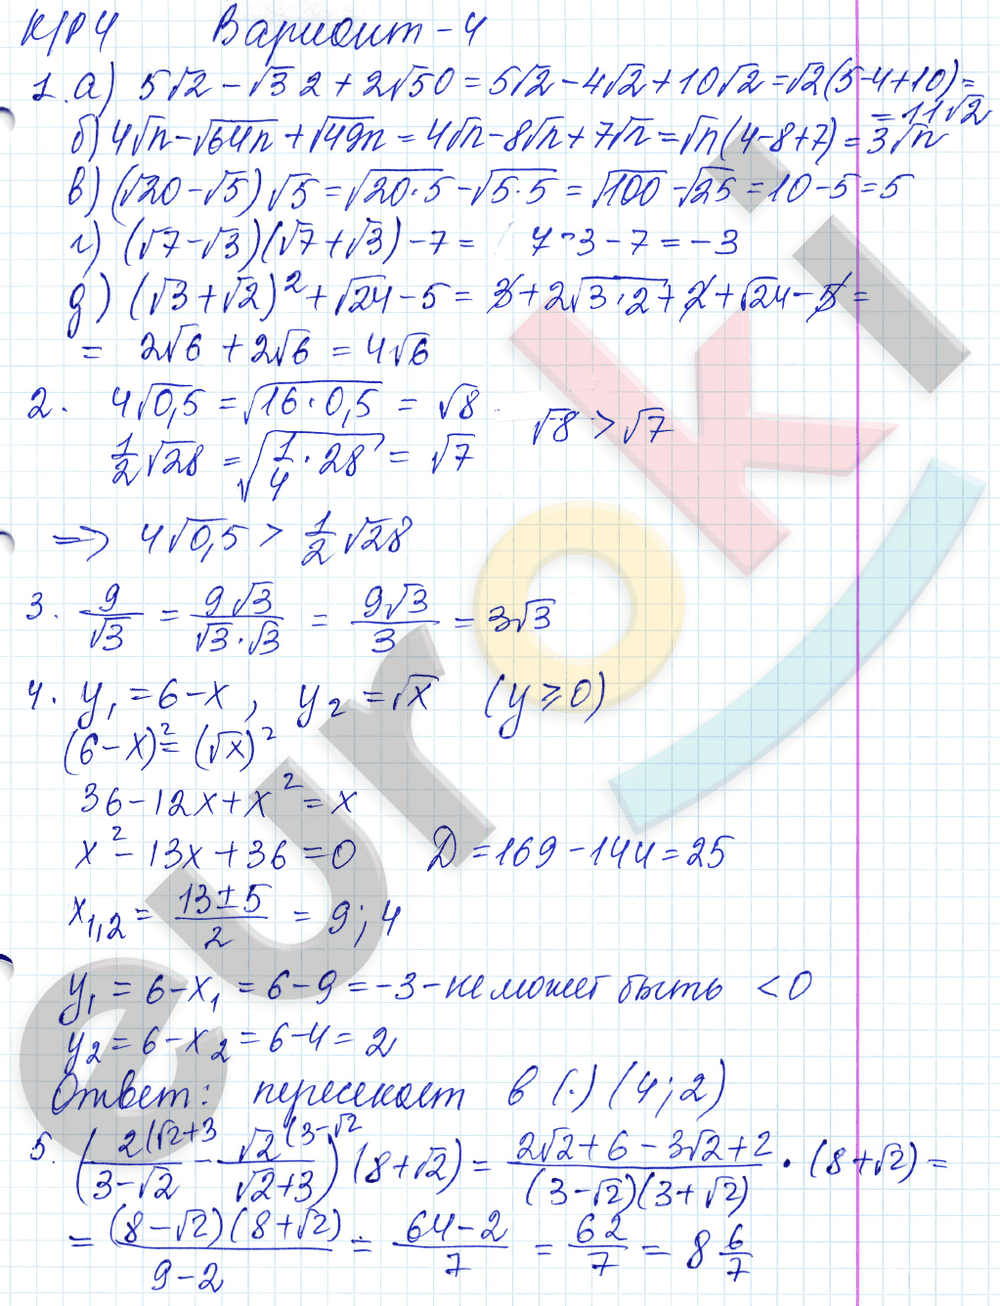 К/Р 4 Вариант - 4
1. а) 5√2 - √32 + 2√50 = 5√2 - 4√2 + 10√2 = √2(5-4+10) =
= 11√2
б) 4√n - √64n + √49n = 4√n - 8√n + 7√n = √n(4-8+7) = 3√n
в) (√20 - √5)√5 = √20·5 - √5·5 = √100 - √25 = 10 - 5 = 5
г) (√7 - √3)(√7 + √3) - 7 = 7 - 3 - 7 = -3
д) (√3 + √2)² + √24 - 5 = 3 + 2√3·2 + 2 + √24 - 5 =
= 2√6 + 2√6 = 4√6
2. 4√0,5 = √16·0,5 = √8 √8 > √7
1/2 √28 = √1/4 · 28 = √7
=> 4√0,5 > 1/2 √28
3. 9/√3 = 9√3/√3·√3 = 9√3/3 = 3√3
4. y₁ = 6 - x, y₂ = √x (y ⩾ 0)
(6 - x)² = (√x)²
36 - 12x + x² = x
x² - 13x + 36 = 0 D = 169 - 144 = 25
x₁,₂ = 13±5/2 = 9; 4
y₁ = 6 - x₁ = 6 - 9 = -3 - не может быть < 0
y₂ = 6 - x₂ = 6 - 4 = 2
Ответ: пересекает в (·) (4; 2)
5. (2(√2+3/3-√2 - √2(3-√2/√2+3)(8+√2) = 2√2+6-3√2+2/(3-√2)(3+√2) · (8+√2) =
= (8-√2)(8+√2)/9-2 = 64-2/7 = 62/7 = 8 6/7
euroki